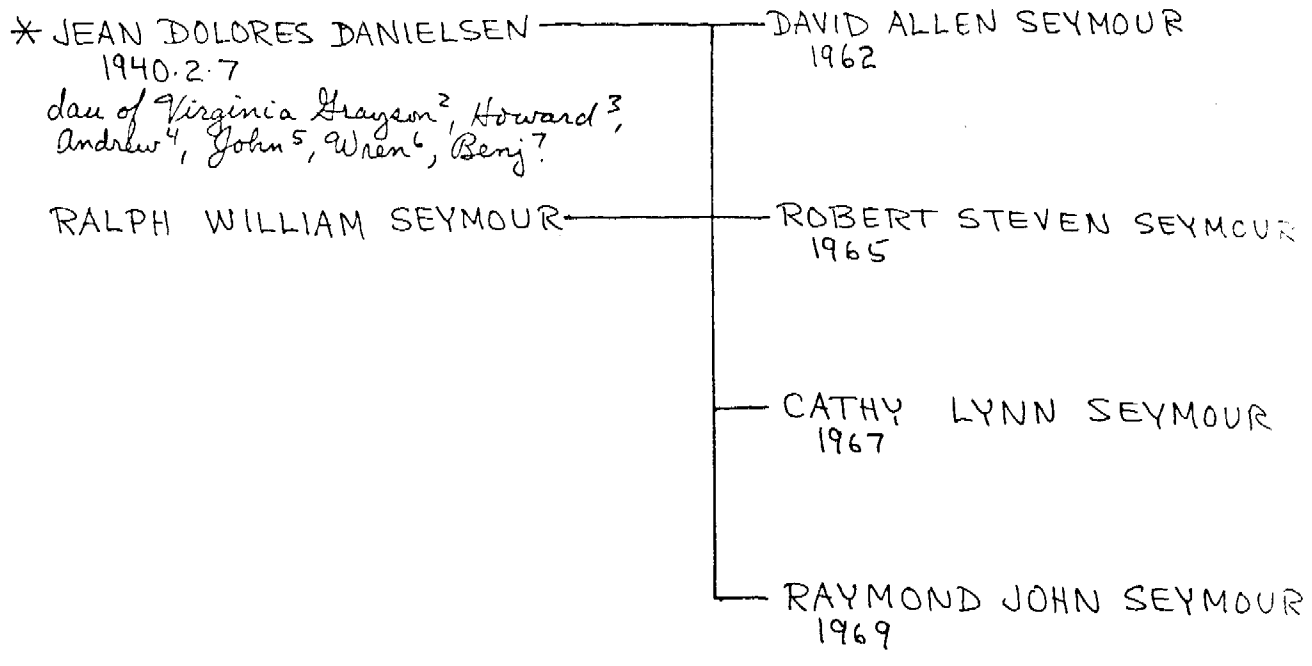 * JEAN DOLORES DANIELSEN
1940.2.7
dau of Virginia Grayson², Howard³,
Andrew⁴, John⁵, Wren⁶, Benj⁷.
RALPH WILLIAM SEYMOUR
DAVID ALLEN SEYMOUR
1962
ROBERT STEVEN SEYMOUR
1965
CATHY LYNN SEYMOUR
1967
RAYMOND JOHN SEYMOUR
1969